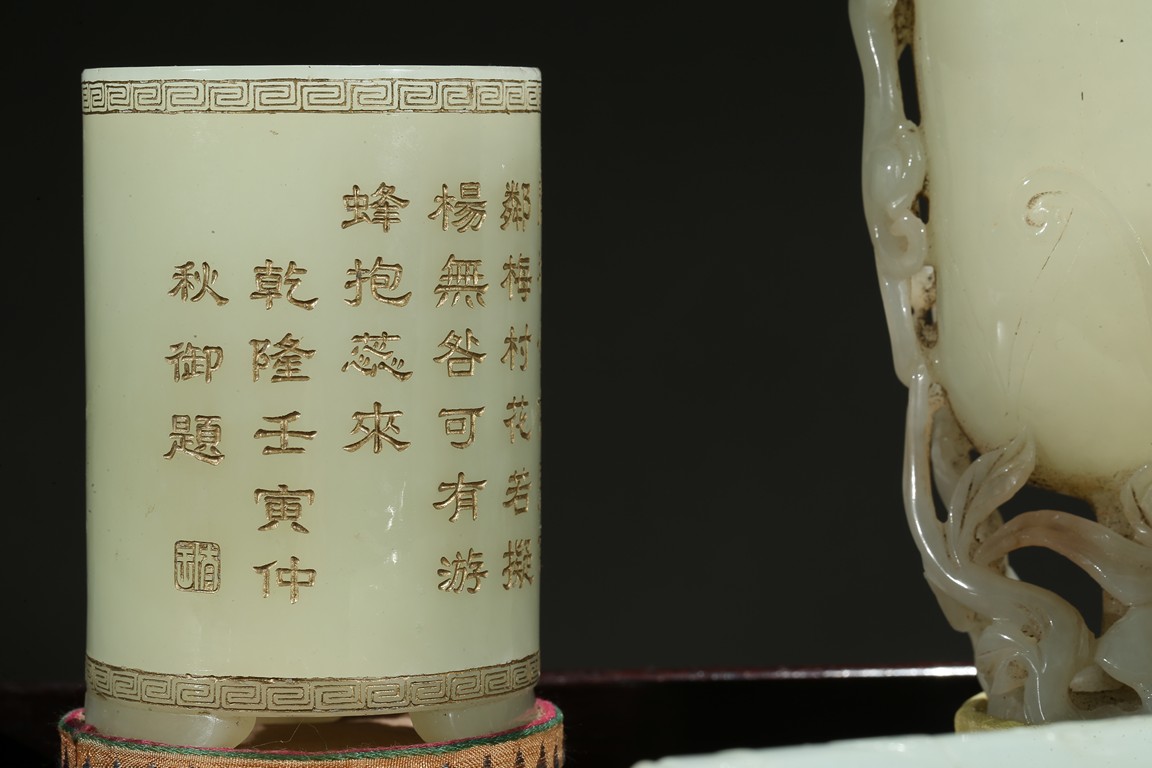 鄰梅村花若擬
楊無咎可有游
蜂抱蕊來
乾隆壬寅仲
秋御題